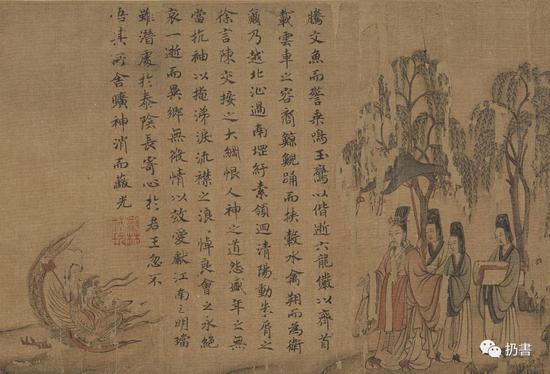 騰文魚而警乘鳴玉鸞以偕逝六龍儼以齊首
載雲車之容裔鯨鯢踊而挾轂水禽翔而為衛
乃越北沚過南堽紆素領迴清陽動朱脣之
徐言陳交接之大綱恨人神之道怨盛年之無
當抗袖以掩涕淚流襟之浪〻悼良會之永絕
哀一逝而異鄉無微情以效愛獻江南之明璫
雖潛處於泰陰長寄心於君王忽不
悟其所舍曠神消而蔽光
扔書